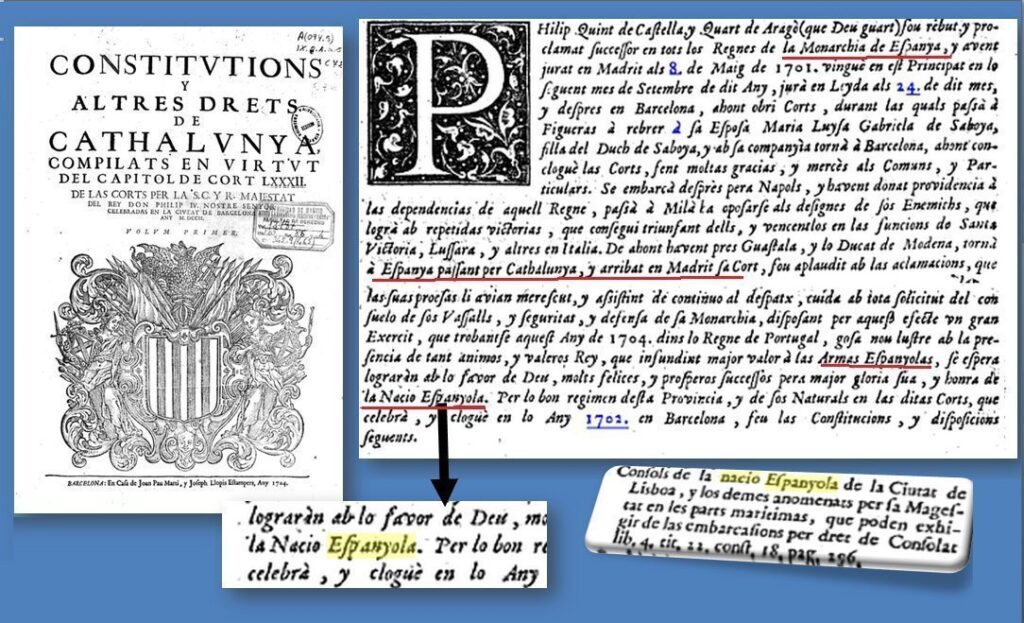 CONSTITVTIONS
Y
ALTRES DRETS
DE
CATHALVNYA,
COMPILATS EN VIRTVT
DEL CAPITOL DE CORT LXXXII.
DE LAS CORTS PER LA S.C. Y R. MAIESTAT
DEL REY DON PHILIP IV. NOSTRE SENYOR
CELEBRADAS EN LA CIVTAT DE BARCELONA
ANY M.DCCII.
VOLVM PRIMER.
BARCELONA: En Caſa de Joan Pau Marti, y Joſeph Llopis Eſtampers, Any 1704.
PHilip Quint de Caſtella, y Quart de Aragò (que Deu guart) ſou rebut, y pro-
clamat ſucceſſor en tots los Regnes de la Monarchia de Eſpanya, y avent
jurat en Madrit als 8. de Maig de 1701. vinguè en eſt Principat en lo
ſeguent mes de Setembre de dit Any, jurà en Leyda als 24. de dit mes,
y deſpres en Barcelona, ahont obri Corts, durant las quals paſsà à
Figueras à rebrer à ſa Eſpoſa Maria Luyſa Gabriela de Saboya,
filla del Duch de Saboya, y ab ſa companyia tornà à Barcelona, ahont con-
clogue las Corts, fent moltas gracias, y mercès als Comuns, y Par-
ticulars. Se embarcà deſprès pera Napols, y havent donat providencia à
las dependencias de aquell Regne, paſsà à Milà ta opoſarſe als deſignes de ſos Enemichs, que
lográ ab repetidas victorias, que conſegui triunfant dells, y vencentlos en las funcions de Santa
Victoria, Luſſara, y altres en Italia. De ahont havent pres Guaſtala, y lo Ducat de Modena, tornà
à Eſpanya paſſant per Cathalunya, y arribat en Madrit ſa Cort, fou aplaudit ab las aclamacions, que
las ſuas proeſas li avian mereſcut, y aſsiſtint de continuo al deſpatx, cuida ab tota ſolicitut del con
ſuelo de ſos Vaſſalls, y ſeguritat, y defenſa de ſa Monarchia, diſpoſant per aqueſt efecte vn gran
Exercit, que trobantſe aqueſt Any de 1704. dins lo Regne de Portugal, goſa nou luſtre ab la pre-
ſencia de tant animos, y valeros Rey, que inſundint major valor à las Armas Eſpanyolas, ſè eſpera
lograràn ab lo favor de Deu, molts felices, y proſperos ſucceſſos pera major gloria ſua, y honra de
la Nacio Eſpanyola. Per lo bon regimen deſta Provincia, y de ſos Naturals en las ditas Corts, que
celebrà, y cloguè en lo Any 1702. en Barcelona, feu las Conſtitucions, y diſpoſicions
ſeguents.
lograràn ab lo favor de Deu, mo
la Nacio Eſpanyola. Per lo bon re
celebrà, y cloguè en lo Any
Conſols de la nacio Eſpanyola de la Ciutat de
Lisboa, y los demes anomenats per ſa Mageſ-
tat en les parts maritimas, que poden exhi-
gir de las embarcaſions per dret de Conſolat
lib. 4. tit. 22. conſt. 18. pag. 296.